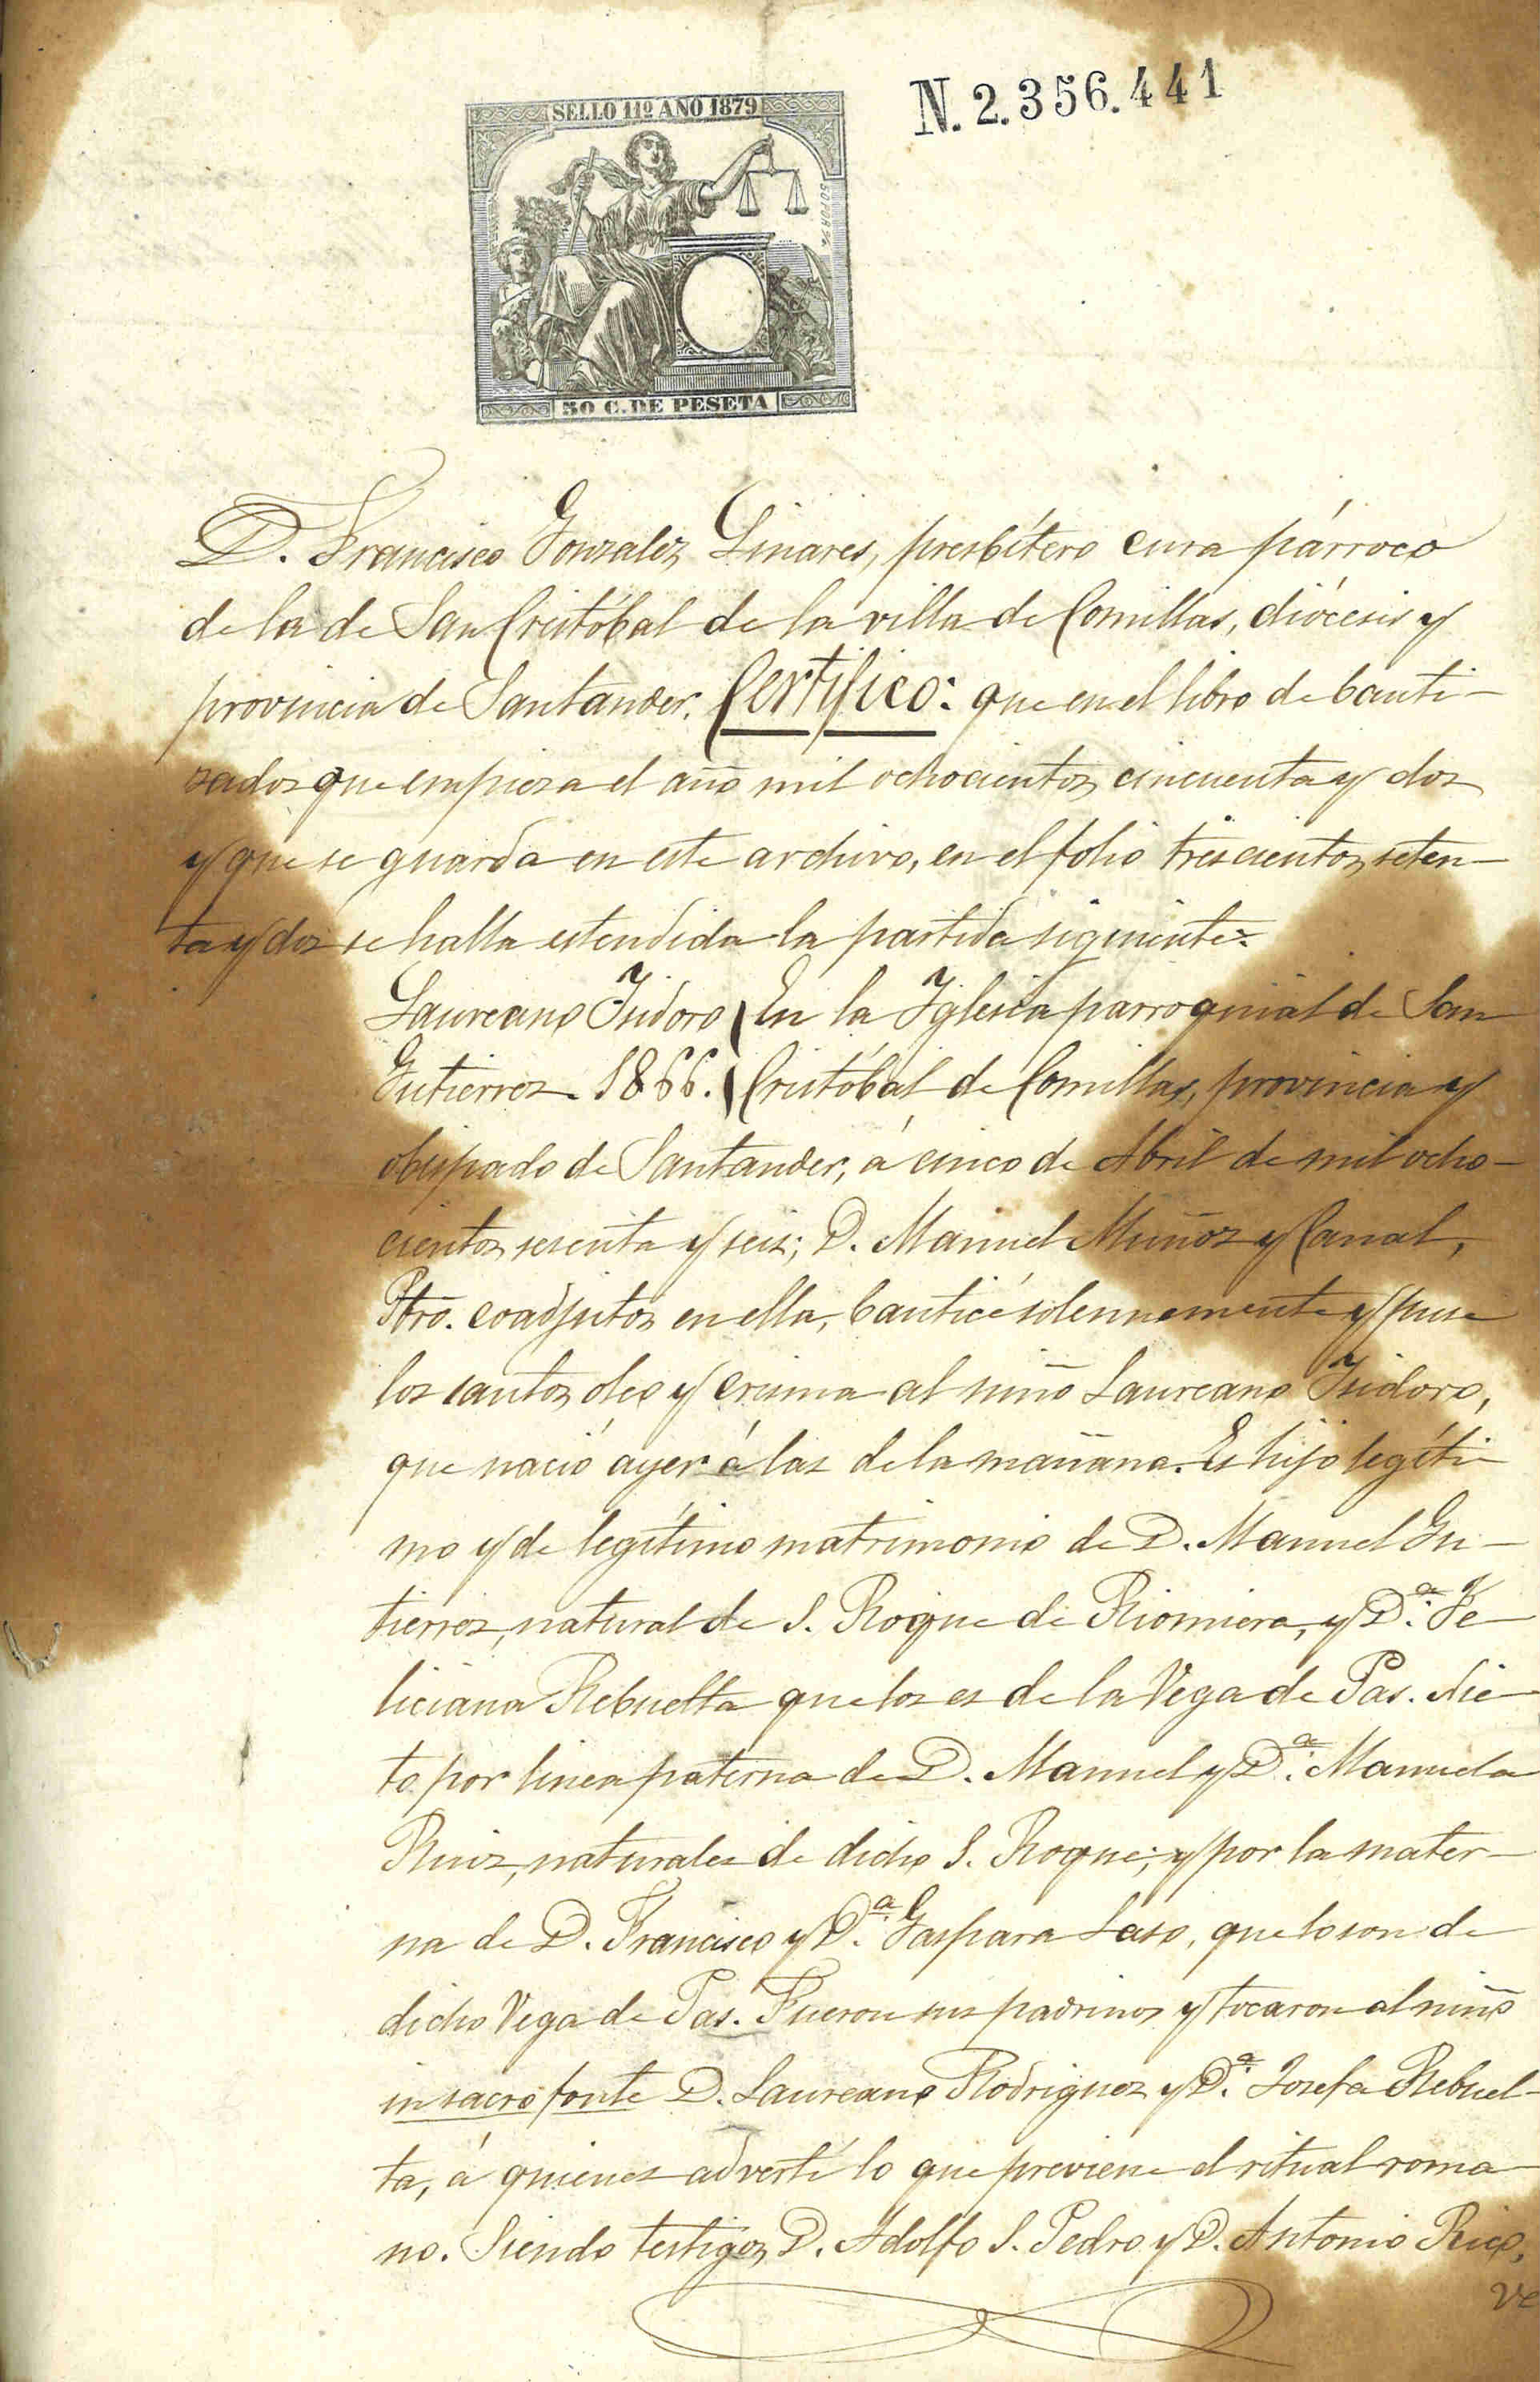 SELLO 11º AÑO 1879
N. 2.356.441
50 C. DE PESETA
D. Francisco Gonzalez Linares, presbítero cura párroco
de la de San Cristóbal de la villa de Comillas, diócesis y
provincia de Santander. Certifico: que en el libro de bauti-
zados que empieza el año mil ochocientos cincuenta y dos
y que se guarda en este archivo, en el folio trescientos seten-
ta y dos se halla estendida la partida siguiente=
Laureano Isidoro En la Iglesia parroquial de San
Gutierrez. 1866. Cristóbal de Comillas, provincia y
obispado de Santander, á cinco de Abril de mil ocho-
cientos sesenta y seis; D. Manuel Muñoz y Canal,
Pbro. coadjutor en ella, bauticé solennemente y puse
los santos oleo y crisma al niño Laureano Isidoro,
que nació ayer á las de la mañana. Es hijo legíti-
mo y de legítimo matrimonio de D. Manuel Gu-
tierrez, natural de S. Roque de Riomiera, y Dª. Fe-
liciana Rebuelta que los es de la Vega de Pas. Nie-
to por linea paterna de D. Manuel y Dª. Manuela
Ruiz, naturales de dicho S. Roque; y por la mater-
na de D. Francisco y Dª. Gaspara Laso, que lo son de
dicho Vega de Pas. Fueron sus padrinos y tocaron al niño
in sacro fonte D. Laureano Rodriguez y Dª. Josefa Rebuel-
ta, á quienes advertí lo que previene el ritual roma-
no. Siendo testigos D. Adolfo S. Pedro y D. Antonio Rico,
ve